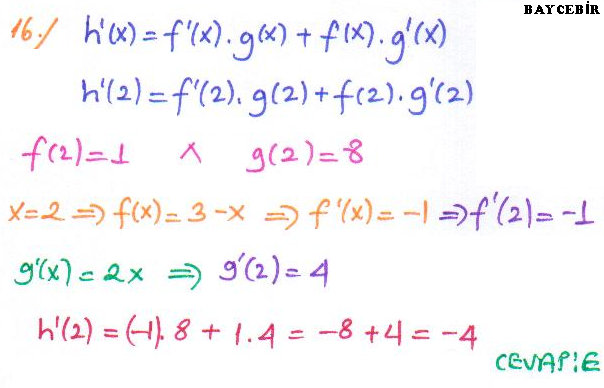 BAYCEBİR
16./ h'(x) = f'(x). g(x) + f(x). g'(x)
h'(2) = f'(2). g(2) + f(2). g'(2)
f(2) = 1 ∧ g(2) = 8
x=2 ⇒ f(x) = 3 - x ⇒ f'(x) = -1 ⇒ f'(2) = -1
g'(x) = 2x ⇒ g'(2) = 4
h'(2) = (-1). 8 + 1.4 = -8 + 4 = -4
CEVAP:E